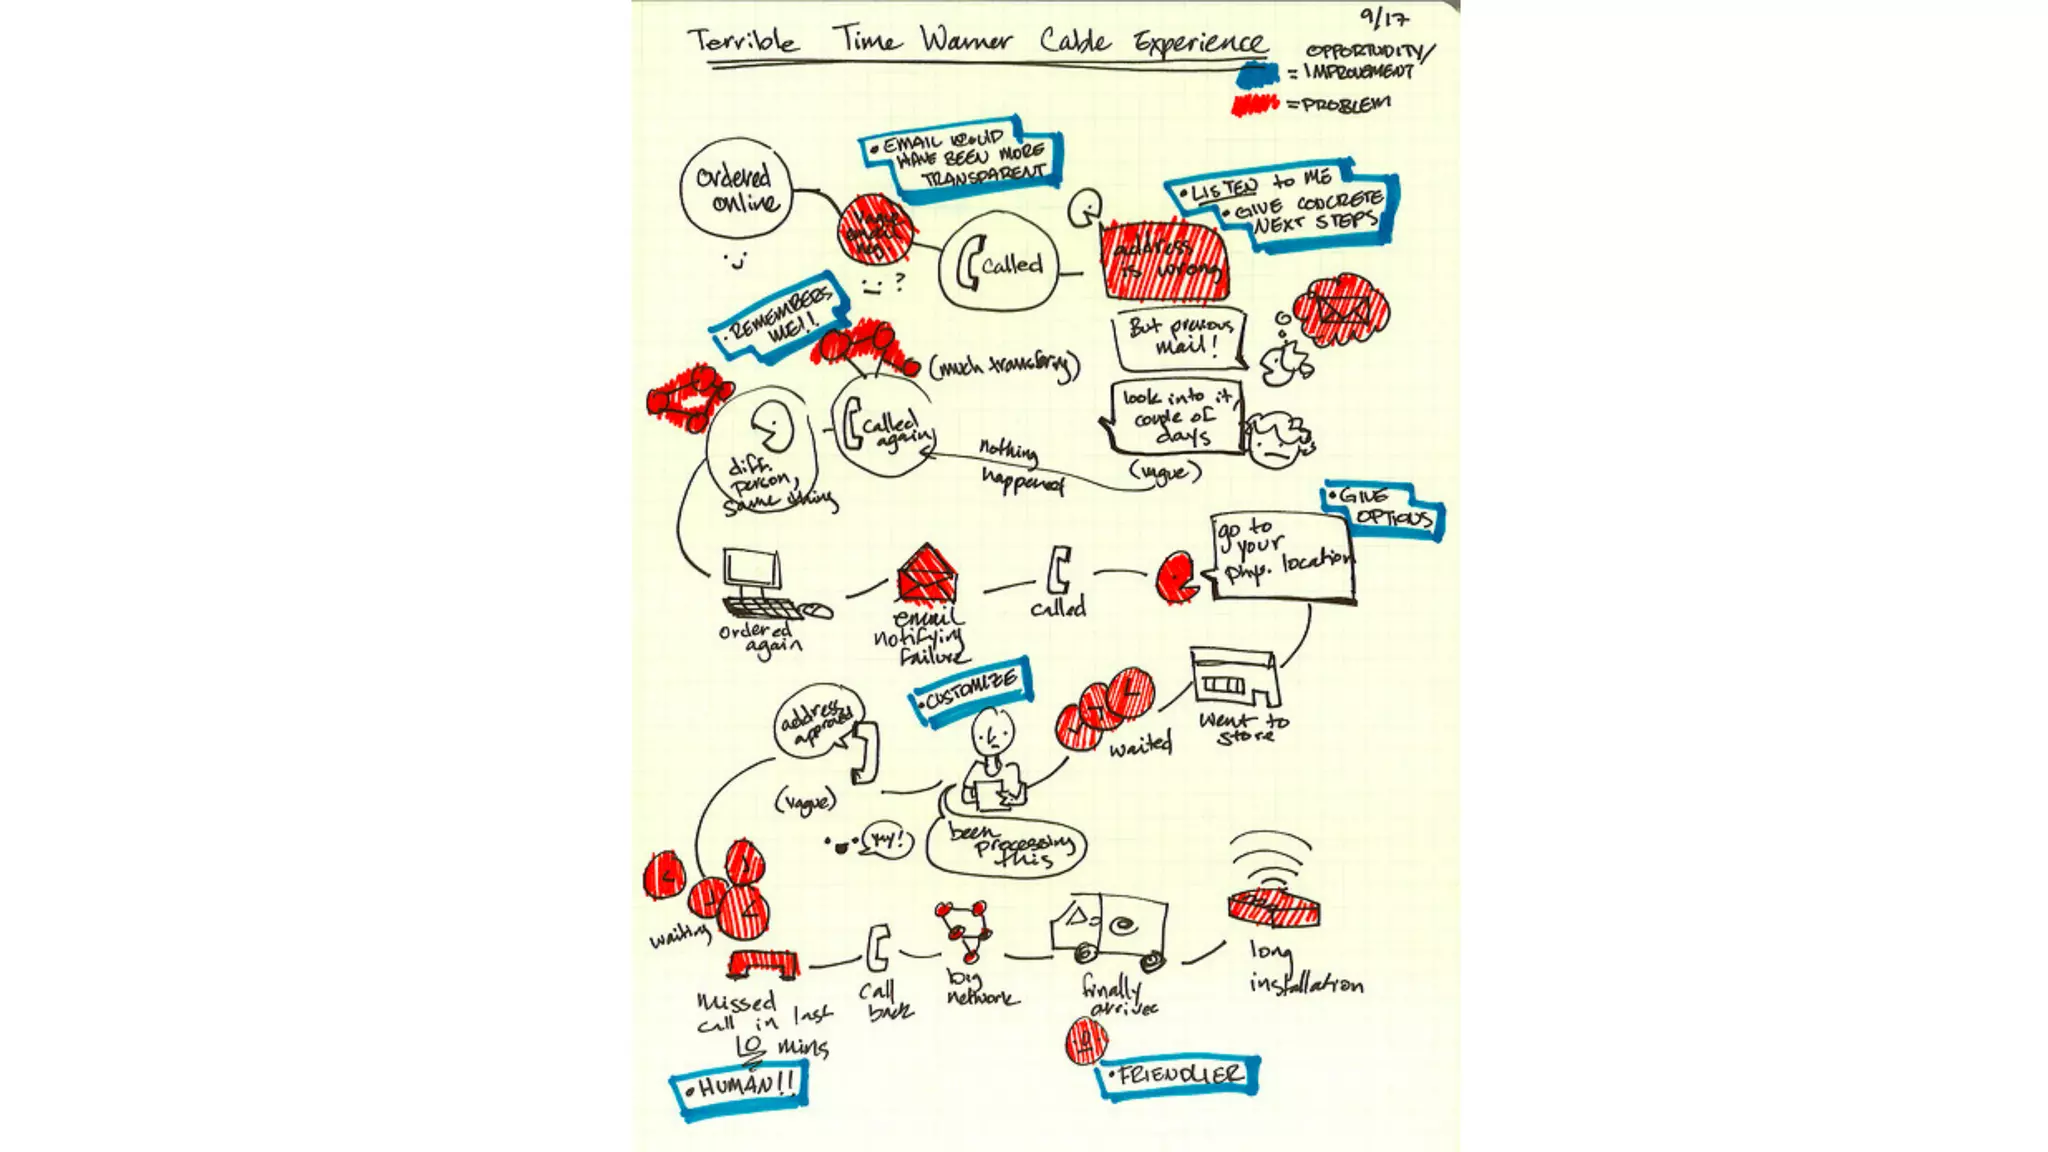 9/17
Terrible Time Warner Cable Experience
OPPORTUNITY/
= IMPROVEMENT
= PROBLEM
• EMAIL WOULD
HAVE BEEN MORE
TRANSPARENT
ordered
online
vague
email
msg
?
called
• LISTEN to ME
• GIVE CONCRETE
NEXT STEPS
address
is wrong
But previous
mail!
look into it,
couple of
days
(vague)
nothing
happened
• REMEMBERS
ME!!
(much transfering)
called
again
diff.
person,
same thing
ordered
again
email
notifying
failure
called
• GIVE
OPTIONS
go to
your
phys. location
went to
store
waited
• CUSTOMIZE
been
processing
this
address
approved
(vague)
yay!
waiting
missed
call in last
10 mins
• HUMAN!!
call
back
big
network
finally
arrives
• FRIENDLIER
long
installation